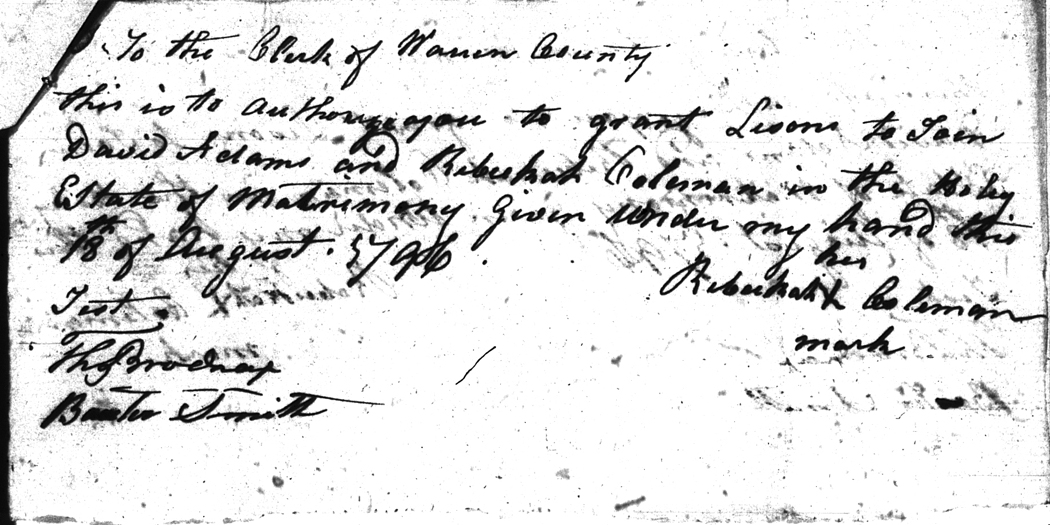 To the Clerk of Warren County
this is to authoryse you to grant Lisons to Join
David Adams and Rebeckah Coleman in the Holy
Estate of Matrimony Given under my hand this
18th of August. 1796.
her
Rebeckah X Coleman
mark
Test
Thos Brodnax
Baxter Smith